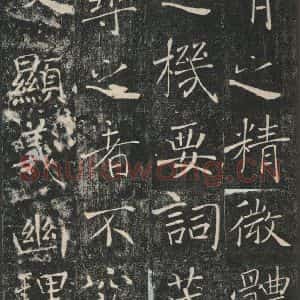 有之精微體
之機要詞茂
尋之者不究
文顯義幽理
Shufawang.CN